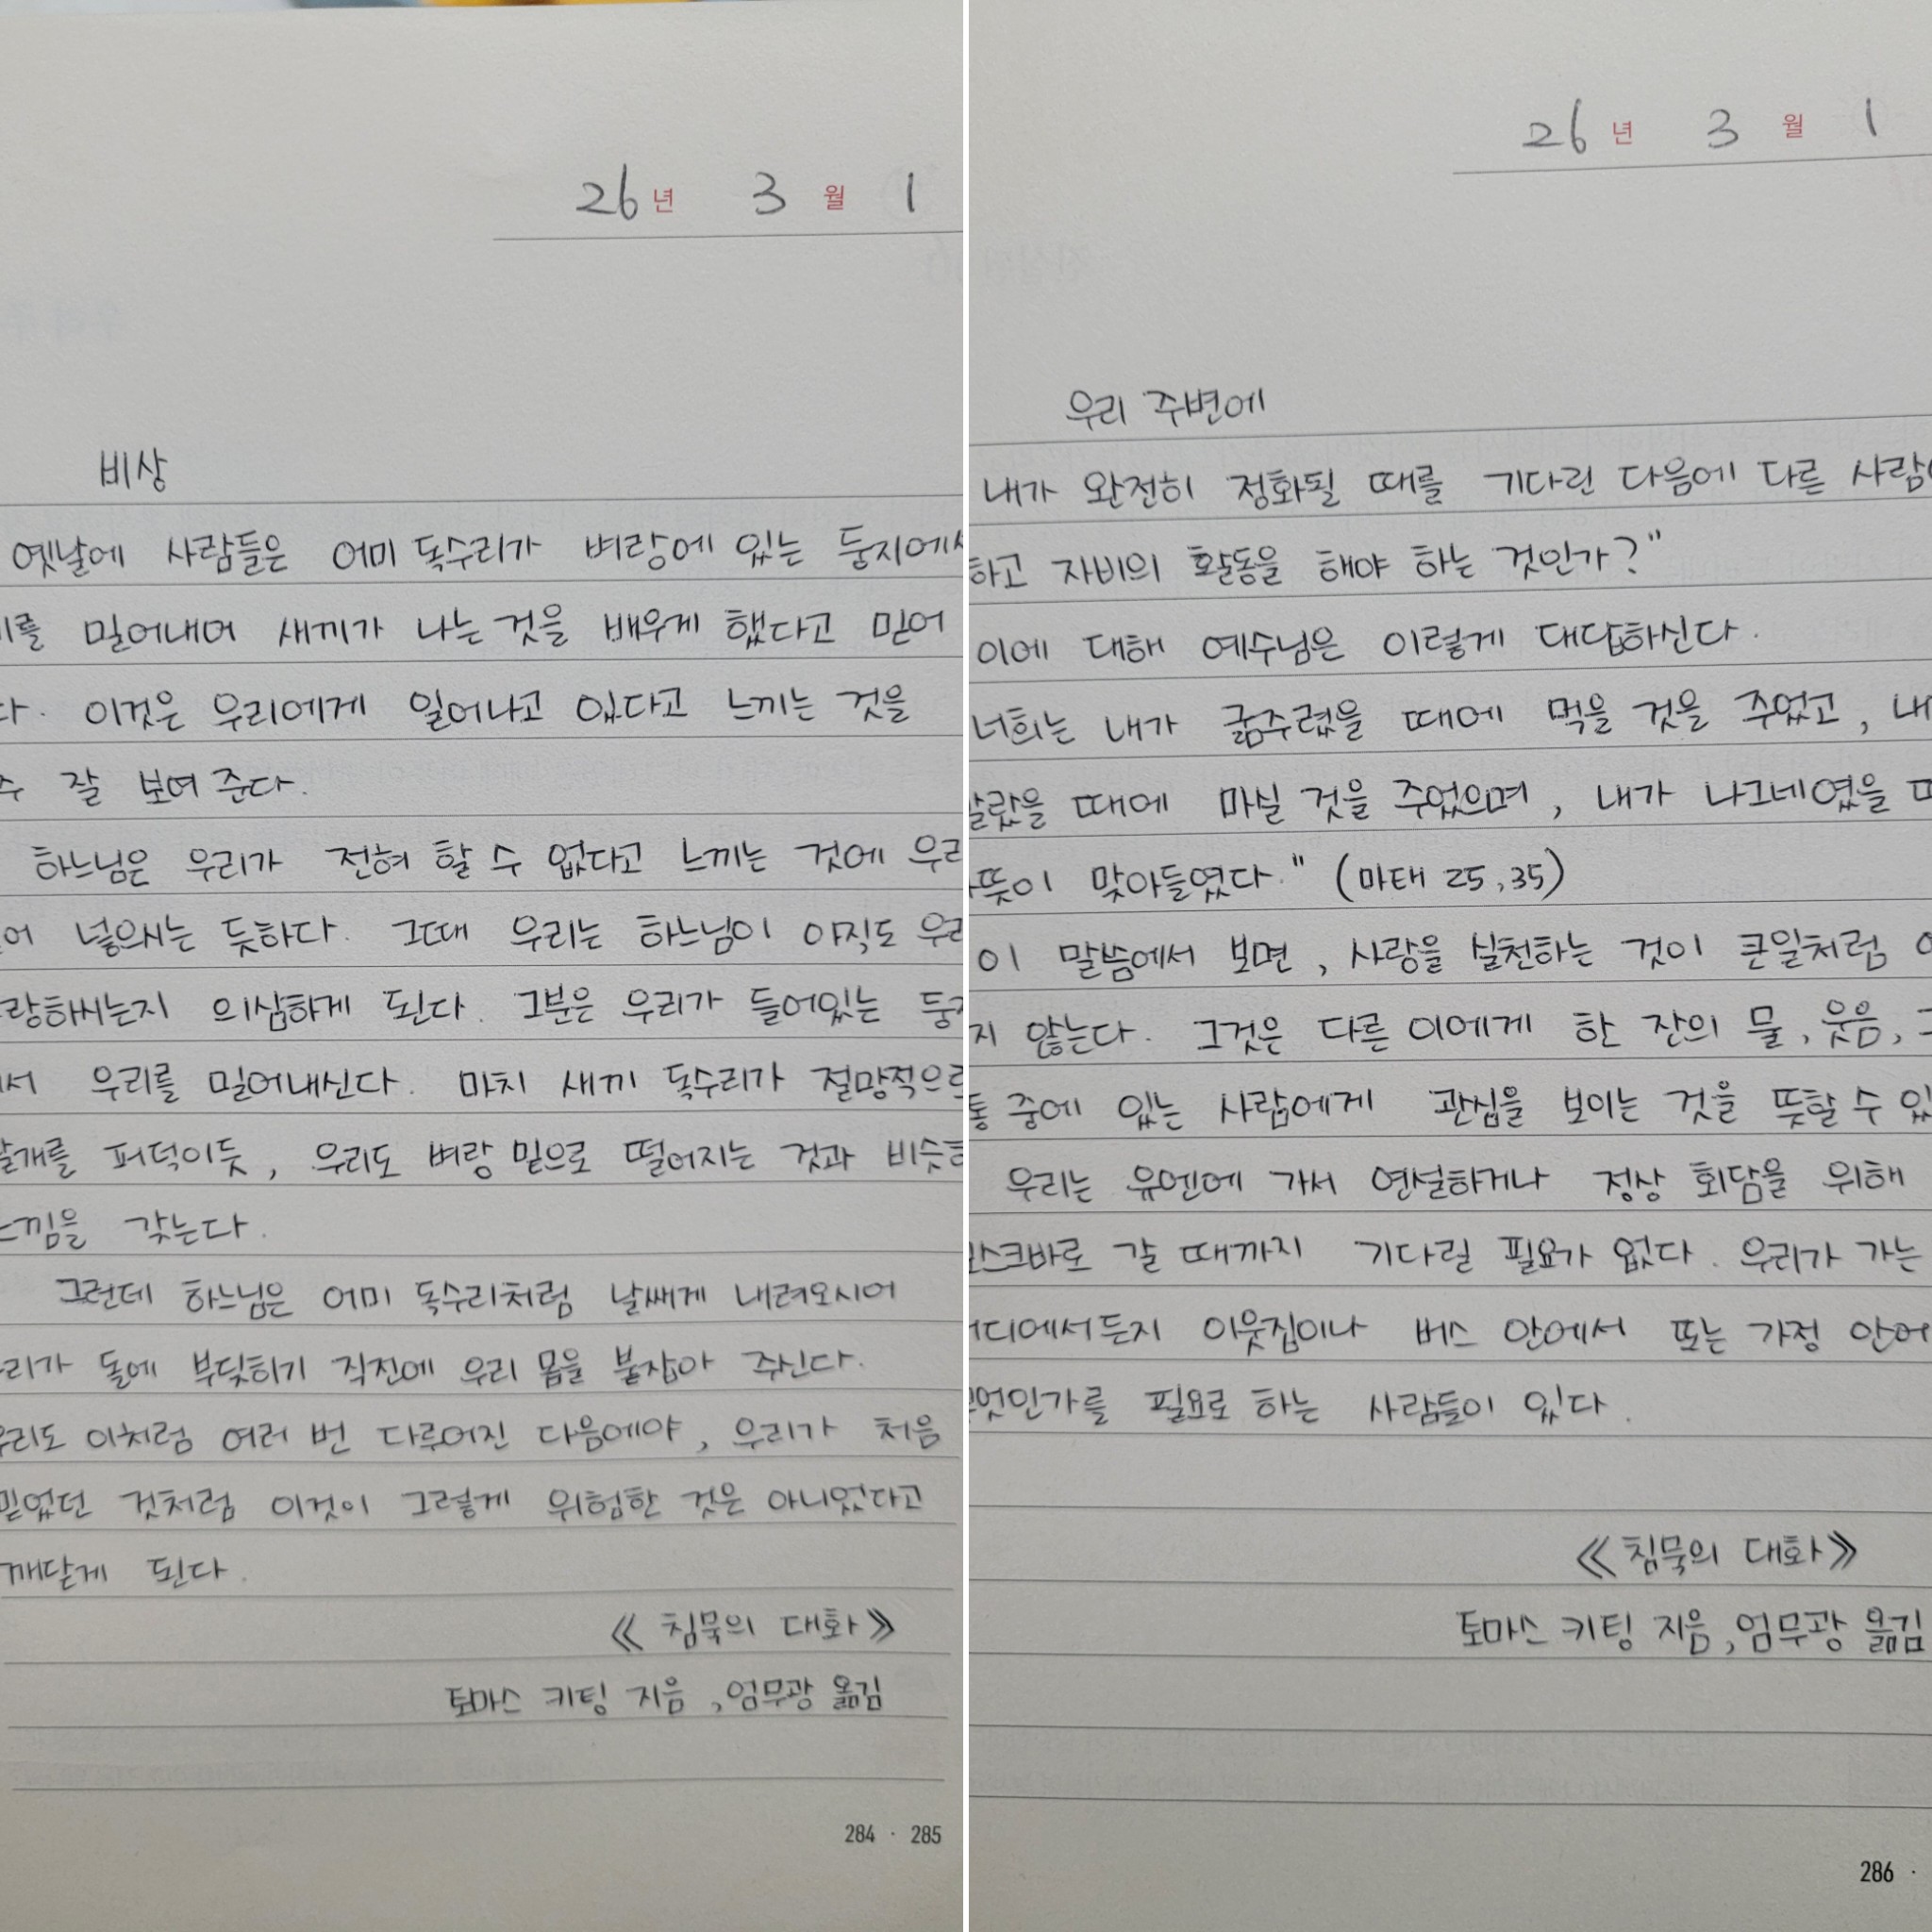 26년 3월 1
비상
옛날에 사람들은 어미 독수리가 벼랑에 있는 둥지에서
를 밀어내어 새끼가 나는 것을 배우게 했다고 믿어
다. 이것은 우리에게 일어나고 있다고 느끼는 것을
잘 보여 준다.
하느님은 우리가 전혀 할 수 없다고 느끼는 것에 우리
어 넣으시는 듯하다. 그때 우리는 하느님이 아직도 우리
랑하시는지 의심하게 된다. 그분은 우리가 들어있는 둥지
서 우리를 밀어내신다. 마치 새끼 독수리가 절망적으로
날개를 퍼덕이듯, 우리도 벼랑 밑으로 떨어지는 것과 비슷한
느낌을 갖는다.
그런데 하느님은 어미 독수리처럼 날쌔게 내려오시어
우리가 돌에 부딪히기 직전에 우리 몸을 붙잡아 주신다.
우리도 이처럼 여러 번 다루어진 다음에야, 우리가 처음
믿었던 것처럼 이것이 그렇게 위험한 것은 아니었다고
깨닫게 된다.
《침묵의 대화》
토마스 키팅 지음, 엄무광 옮김
284 · 285
26년 3월 1
우리 주변에
내가 완전히 정화될 때를 기다린 다음에 다른 사람
하고 자비의 활동을 해야 하는 것인가?"
이에 대해 예수님은 이렇게 대답하신다.
너희는 내가 굶주렸을 때에 먹을 것을 주었고, 내
말랐을 때에 마실 것을 주었으며, 내가 나그네였을 때
뜻이 맞아들였다." (마태 25,35)
이 말씀에서 보면, 사랑을 실천하는 것이 큰일처럼
지 않는다. 그것은 다른 이에게 한 잔의 물, 웃음,
통 중에 있는 사람에게 관심을 보이는 것을 뜻할 수 있
우리는 유엔에 가서 연설하거나 정상 회담을 위해
모스크바로 갈 때까지 기다릴 필요가 없다. 우리가 가는
어디에서든지 이웃집이나 버스 안에서 또는 가정 안에
무엇인가를 필요로 하는 사람들이 있다.
《침묵의 대화》
토마스 키팅 지음, 엄무광 옮김
286 ·